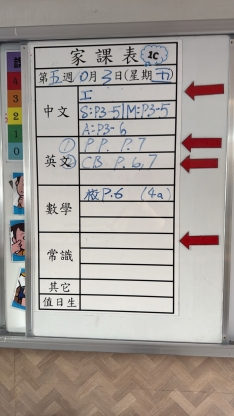 家課表 1C
第五週 10月3日(星期五)
中文
工
S:P3-5 M:P3-5
A:P3-6
英文
① P.P. P.7
② C.B P.6,7
數學
校P.6 (4a)
常識
其它
值日生
4
3
2
1
0